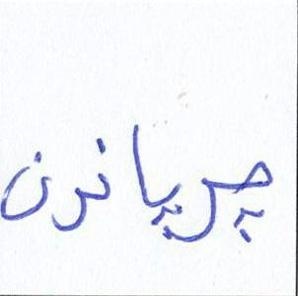 چرپانرن